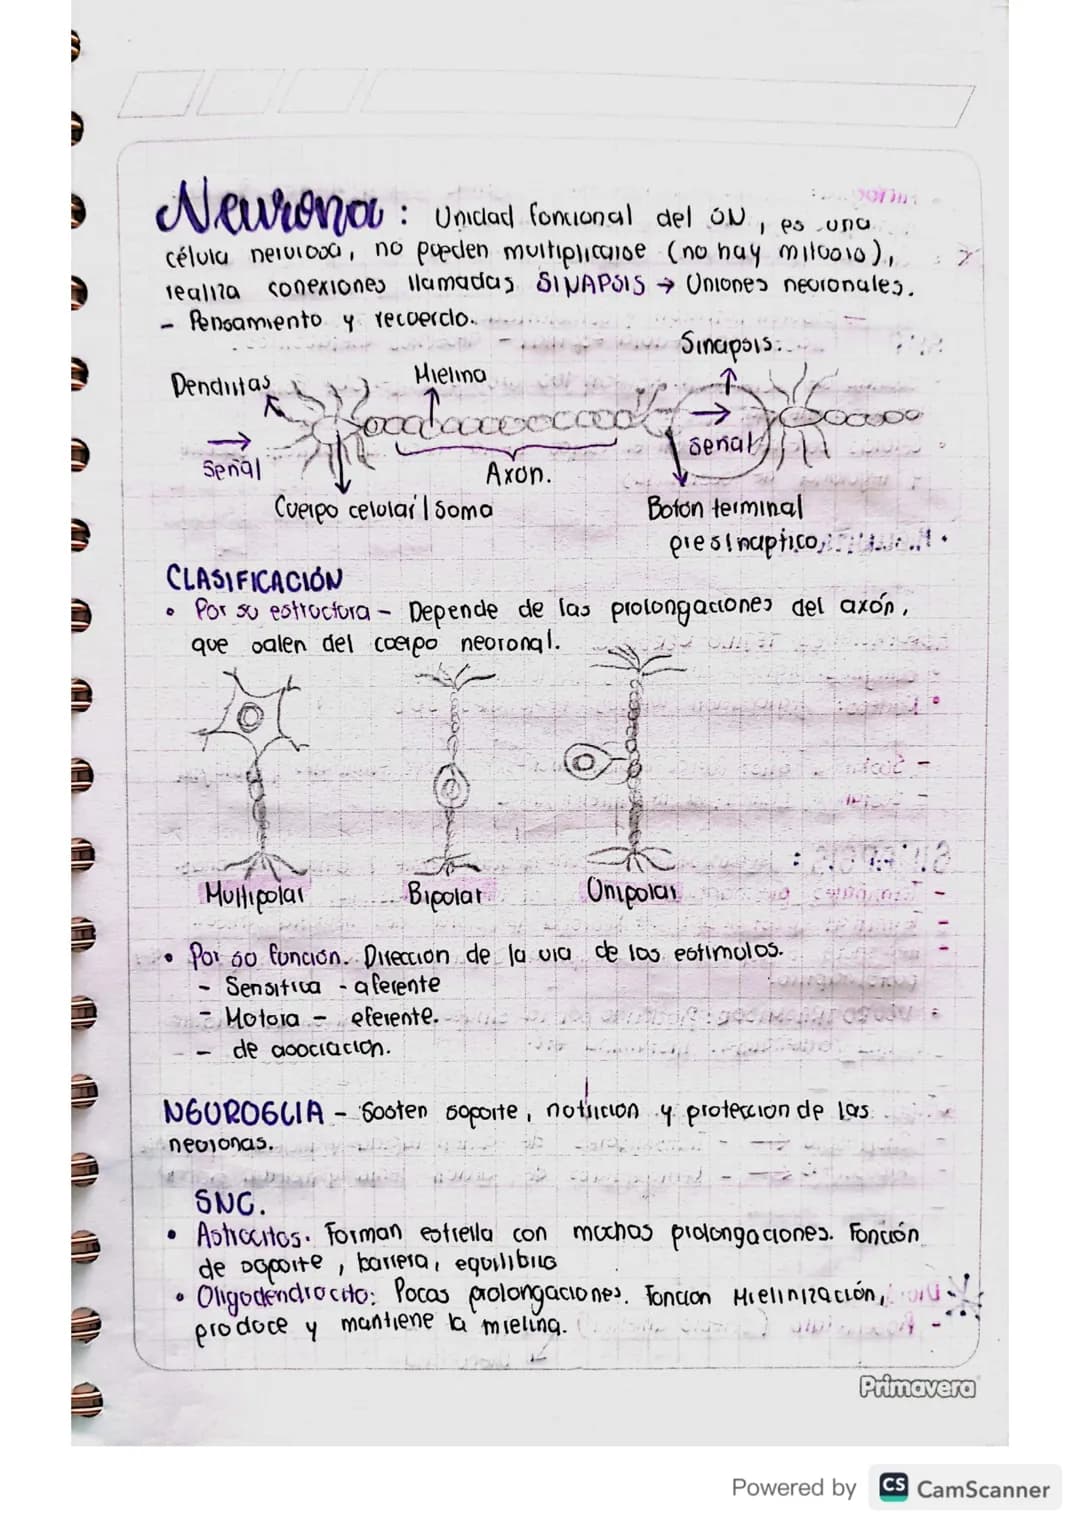 Neurona : Unidad funcional del SN, es una
célula nerviosa, no pueden multiplicarse (no hay mitosis),
realiza conexiones llamadas SINAPSIS → Uniones neuronales.
- Pensamiento y recuerdo.
Sinapsis.
Dendritas
Mielina
Señal
Señal
Axón.
Cuerpo celular / Soma
Botón terminal
presinaptico
CLASIFICACIÓN
• Por su estructura - Depende de las prolongaciones del axón,
que salen del cuerpo neuronal.
Multipolar
Bipolar
Unipolar
• Por su función. Dirección de la via de los estimulos.
- Sensitiva - aferente
- Motora - eferente.
- de asociacion.
NEUROGLIA - Sosten soporte, nutricion y proteccion de las
neuronas.
SNC.
• Astrocitos. Forman estrella con muchas prolongaciones. Función
de soporte, barrera, equilibrio
• Oligodendrocito: Pocas prolongaciones. Funcion Mielinización,
produce y mantiene la mielina.
Primavera
Powered by CS CamScanner